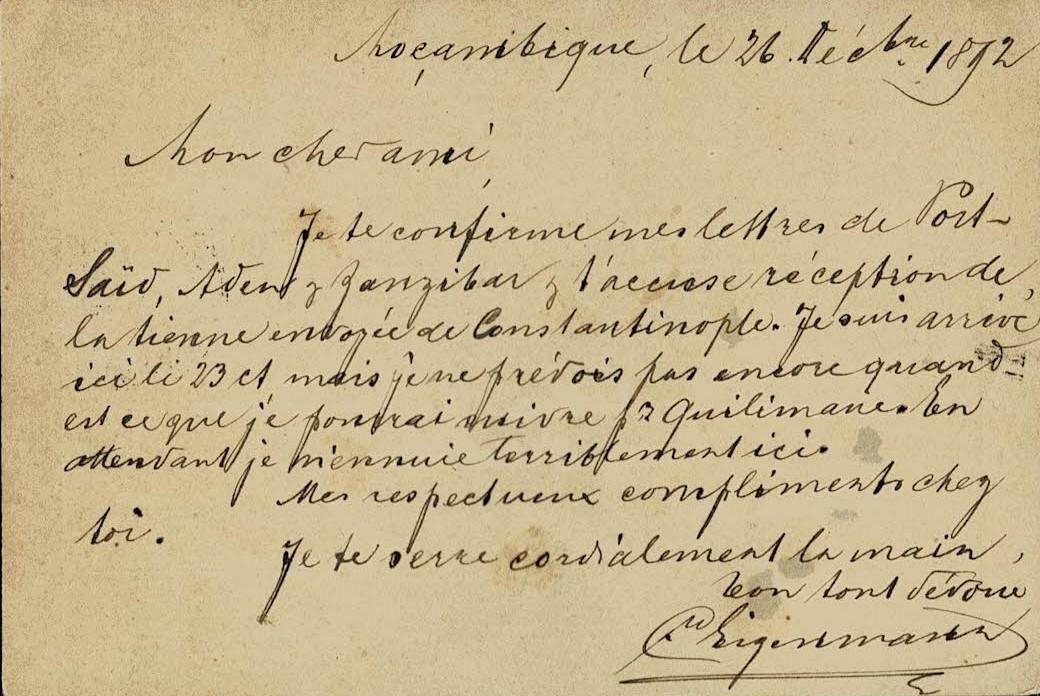 Moçambique, le 26 Décbre 1892
Mon cher ami
Je te confirme mes lettres de Port-
Saïd, Aden & Zanzibar & t'accuse réception de
la tienne envoyée de Constantinople. Je suis arrivé
ici le 23 ct mais je ne prévois pas encore quand
est ce que je pourrai suivre pr Quilimane. En
attendant je m'ennuie terriblement ici.
Mes respectueux compliments chez
toi.
Je te serre cordialement la main,
Ton tout dévoué
Eigenmann